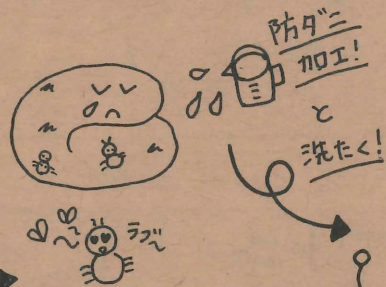 防ダニ
加工!
と
洗たく!
ラブ〜